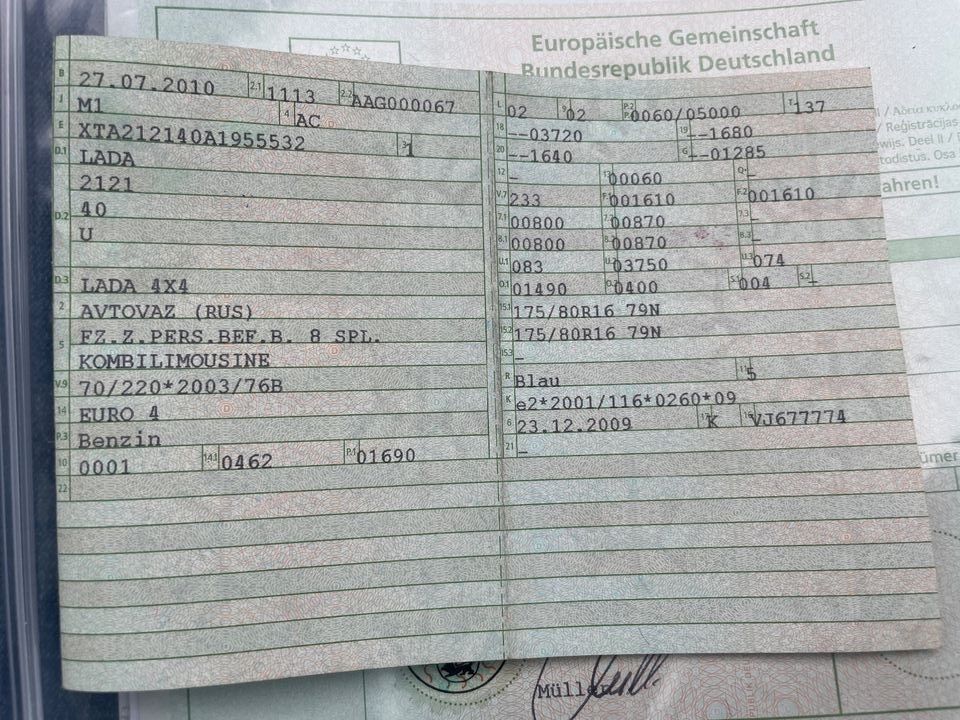 Europäische Gemeinschaft
Bundesrepublik Deutschland
B 27.07.2010 2.1 1113 2.2 AAG000067
J M1 4 AC
E XTA212140A1955532 3 1
D.1 LADA
2121
D.2 40
U
D.3 LADA 4X4
2 AVTOVAZ (RUS)
5 FZ.Z.PERS.BEF.B. 8 SPL.
KOMBILIMOUSINE
V.9 70/220*2003/76B
14 EURO 4
P.3 Benzin
10 0001 14.1 0462 P.1 01690
22
L 02 9 02 P.2 P.4 0060/05000 T 137
18 --03720 19 --1680
20 --1640 G --01285
12 - 13 00060 Q -
V.7 233 F.1 001610 F.2 001610
7.1 00800 7.2 00870 7.3 -
8.1 00800 8.2 00870 8.3 -
U.1 083 U.2 03750 U.3 074
O.1 01490 O.2 0400 S.1 004 S.2 -
15.1 175/80R16 79N
15.2 175/80R16 79N
15.3 -
R Blau 11 5
K e2*2001/116*0260*09
6 23.12.2009 17 K 16 VJ677774
21 -
/ Reģistrācijas
Deel II /
Osa
ahren!
Müller